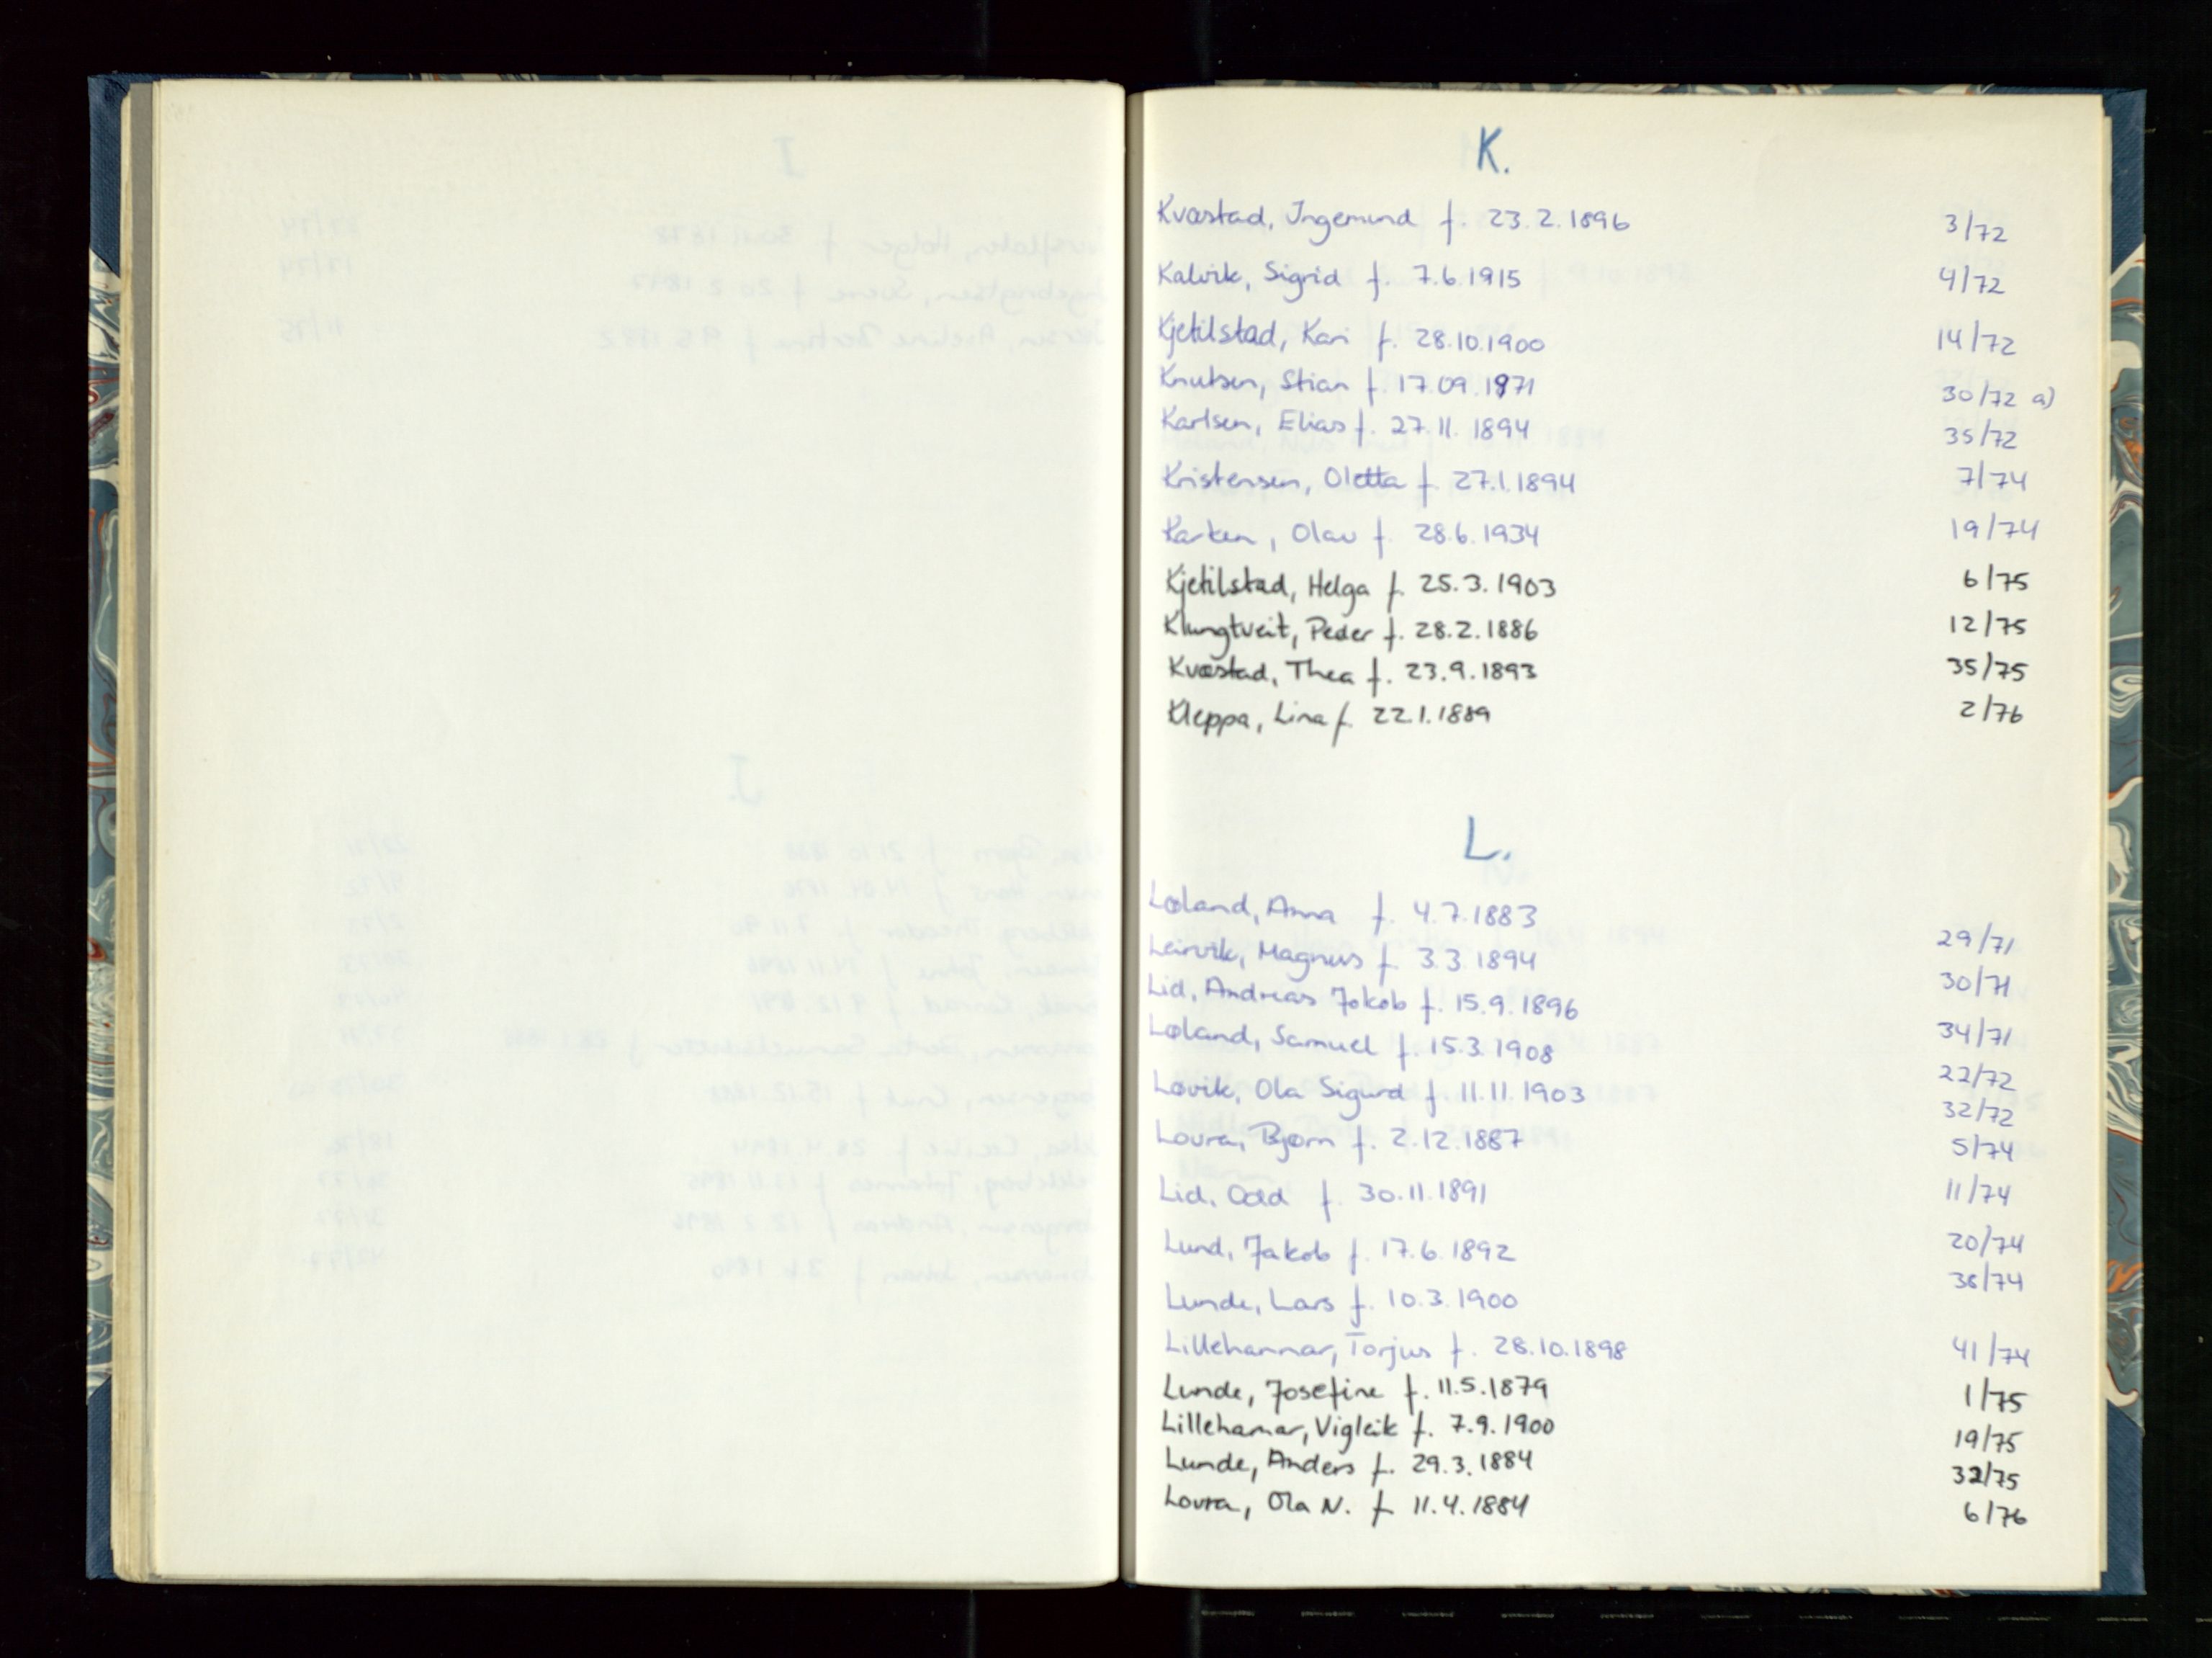 K.
Kvæstad, Ingemund f. 23.2.1896 3/72
Kalvik, Sigrid f. 7.6.1915 4/72
Kjetilstad, Kari f. 28.10.1900 14/72
Knutsen, Stian f. 17.09.1971 30/72 a)
Karlsen, Elias f. 27.11.1894 35/72
Kristensen, Oletta f. 27.1.1894 7/74
Karken, Olav f. 28.6.1934 19/74
Kjetilstad, Helga f. 25.3.1903 6/75
Klungtveit, Peder f. 28.2.1886 12/75
Kvæstad, Thea f. 23.9.1893 35/75
Kleppa, Lina f. 22.1.1889 2/76
L.
Løland, Anna f. 4.7.1883 29/71
Leirvik, Magnus f. 3.3.1894 30/71
Lid, Andreas Jakob f. 15.9.1896 34/71
Løland, Samuel f. 15.3.1908 22/72
Løvik, Ola Sigurd f. 11.11.1903 32/72
Lovra, Bjørn f. 2.12.1887 5/74
Lid, Odd f. 30.11.1891 11/74
Lund, Jakob f. 17.6.1892 20/74
Lunde, Lars f. 10.3.1900 /74
Lillehammar, Torjus f. 28.10.1898 41/74
Lunde, Josefine f. 11.5.1879 1/75
Lillehamar, Vigleik f. 7.9.1900 19/75
Lunde, Anders f. 29.3.1884 32/75
Lovra, Ola N. f. 11.4.1884 6/76